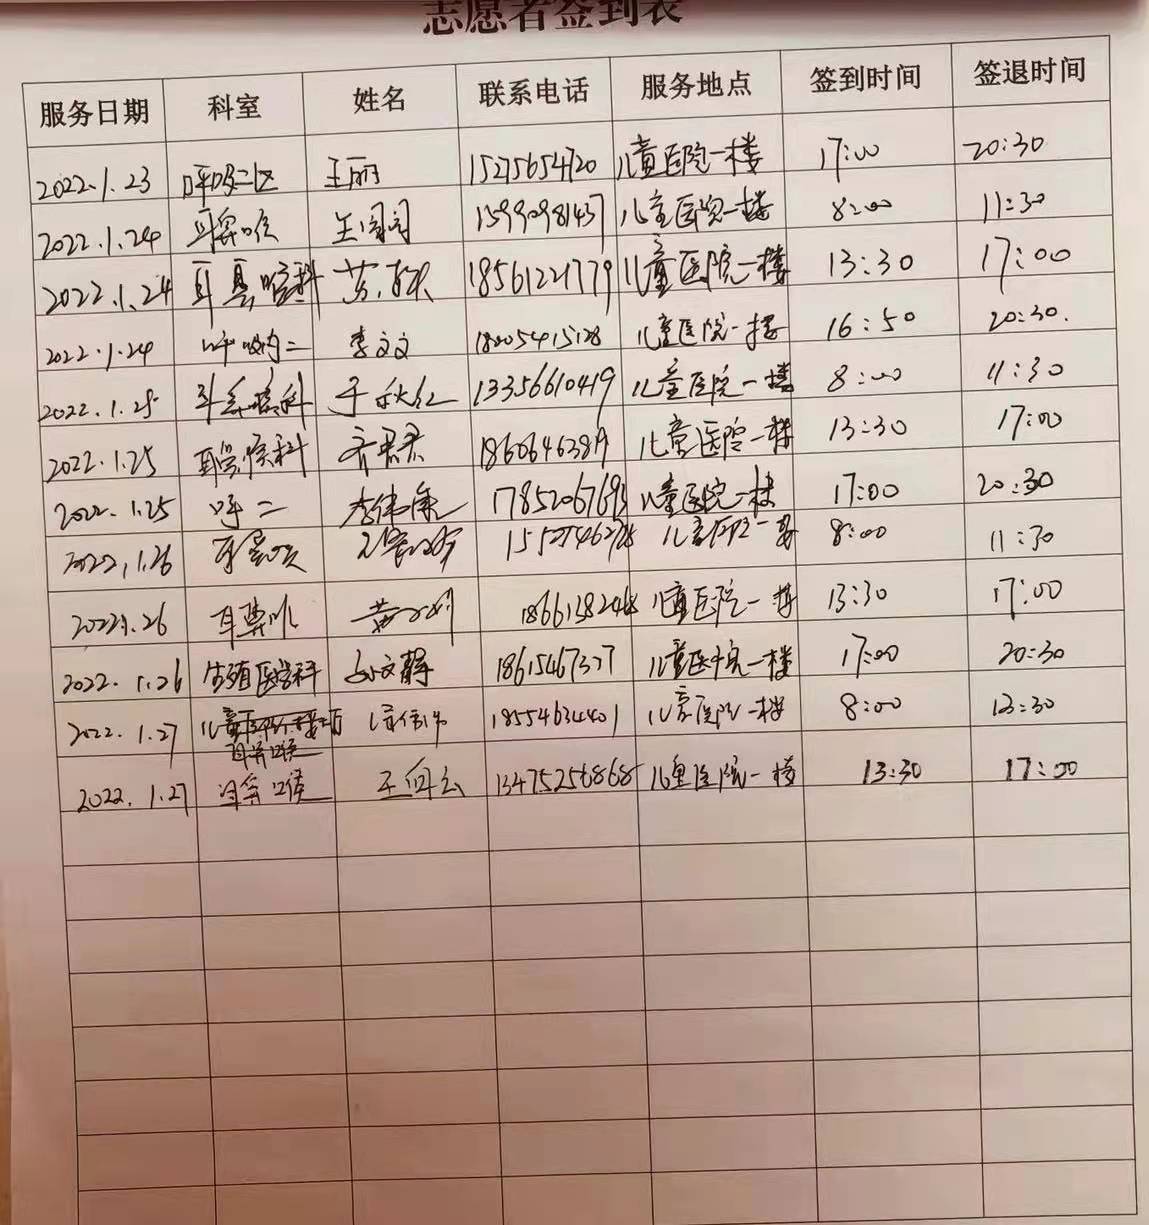 志愿者签到表
服务日期 科室 姓名 联系电话 服务地点 签到时间 签退时间
2022.1.23 呼吸二区 王丽 15275654720 儿童医院一楼 17:00 20:30
2022.1.24 耳鼻喉 王闺闺 儿童医院一楼 8:00 11:30
2022.1.24 耳鼻喉科 18561221779 儿童医院一楼 13:30 17:00
2022.1.24 呼吸内二 李文文 18005415128 儿童医院一楼 16:50 20:30.
2022.1.25 耳鼻喉科 于秋红 13356610419 儿童医院一楼 8:00 11:30
2022.1.25 耳鼻喉科 齐君君 儿童医院一楼 13:30 17:00
2022.1.25 呼二 李伟康 17852067693 儿童医院一楼 17:00 20:30
2022.1.26 耳鼻喉 儿童医院一楼 8:00 11:30
2022.1.26 耳鼻喉 儿童医院一楼 13:30 17:00
2022.1.26 生殖医学科 18615467327 儿童医院一楼 17:00 20:30
2022.1.27 18554634401 儿童医院一楼 8:00
耳鼻喉
2022.1.27 耳鼻喉 13475256868 儿童医院一楼 13:30 17:00